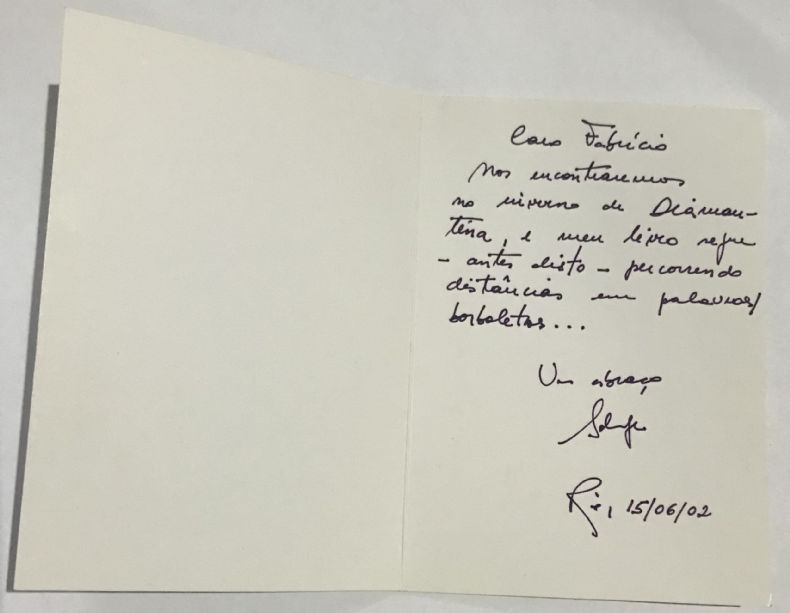 Caro Fabrício
Nos encontraremos
no inverno de Diaman-
tina, e meu livro segue
- antes disto - percorrendo
distâncias em palavras/
borboletas...
Um abraço
Rio, 15/06/02